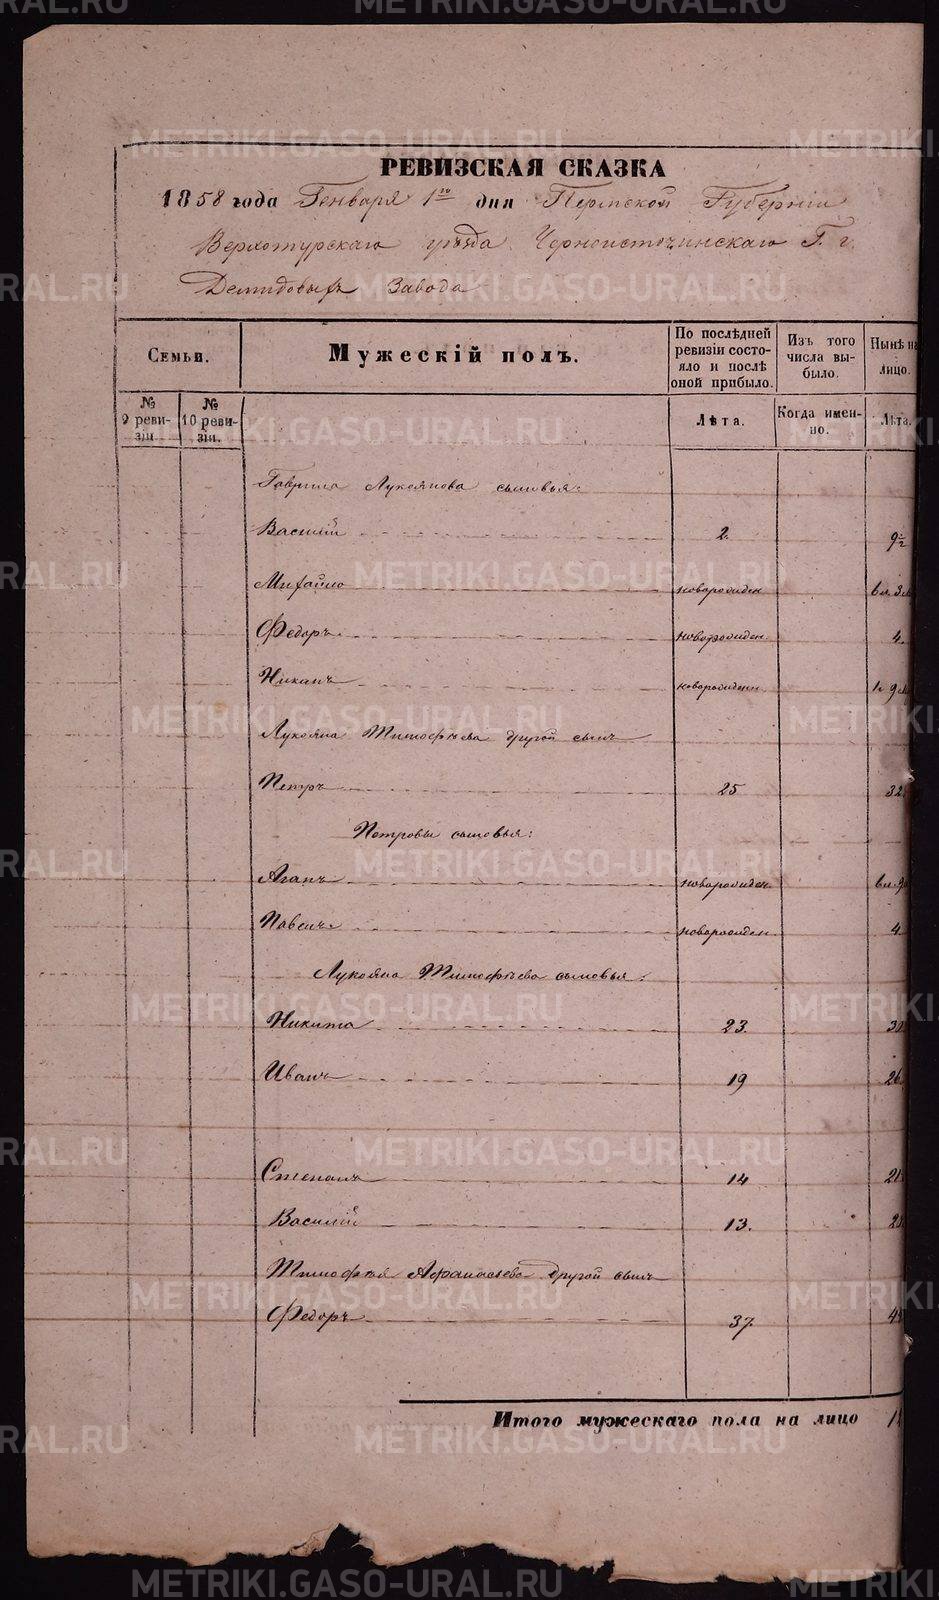 РЕВИЗСКАЯ СКАЗКА
1858 года Генваря 1го дня Пермской Губерніи
Верхотурскаго уѣзда Черноисточинскаго Г. г.
Демидовыхъ Завода
Семьи.
Мужескій полъ.
По послѣдней ревизіи состояло и послѣ оной прибыло.
Изъ того числа выбыло.
Нынѣ на лицо.
№ 9 ревизіи.
№ 10 ревизіи.
Лѣта.
Когда именно.
Лѣта.
Гаврила Лукоянова сыновья:
Василій 2. 9½
Михайло новорожден
Федоръ новорожден. 4.
новорожден
Лукояна Тимофѣева другой сынъ
Петръ 25 32
Петровы сыновья:
Агапъ новорожден
новорожден 4
Лукояна Тимофѣева сыновья:
Никита 23.
Иванъ 19 26
Степанъ 14 21
Василій 13.
Тимофѣя Афанасьева другой сынъ
Федоръ 37.
Итого мужескаго пола на лицо
METRIKI.GASO-URAL.RU